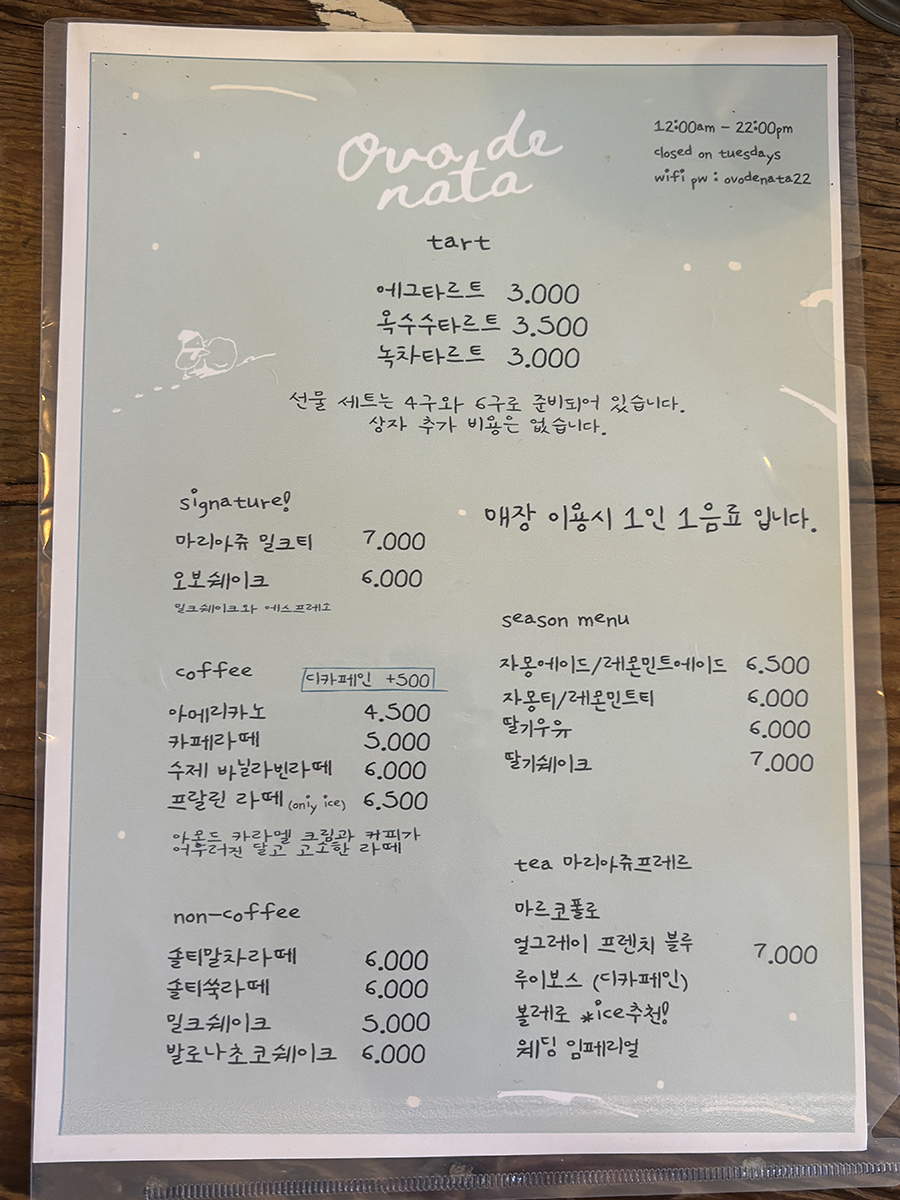 Ovo de
nata
12:00am - 22:00pm
closed on tuesdays
wifi pw : ovodenata22
tart
에그타르트 3.000
옥수수타르트 3.500
녹차타르트 3.000
선물 세트는 4구와 6구로 준비되어 있습니다.
상자 추가 비용은 없습니다.
signature!
마리아쥬 밀크티 7.000
오보쉐이크 6.000
밀크쉐이크와 에스프레소
coffee 디카페인 +500
아메리카노 4.500
카페라떼 5.000
수제 바닐라빈라떼 6.000
프랄린 라떼 (only ice) 6.500
아몬드 카라멜 크림과 커피가
어우러진 달고 고소한 라떼
non-coffee
솔티말차라떼 6.000
솔티쑥라떼 6.000
밀크쉐이크 5.000
발로나초코쉐이크 6.000
매장 이용시 1인 1음료 입니다.
season menu
자몽에이드/레몬민트에이드 6.500
자몽티/레몬민트티 6.000
딸기우유 6.000
딸기쉐이크 7.000
tea 마리아쥬프레르
마르코폴로
얼그레이 프렌치 블루 7.000
루이보스 (디카페인)
볼레로 *ice추천!
웨딩 임페리얼